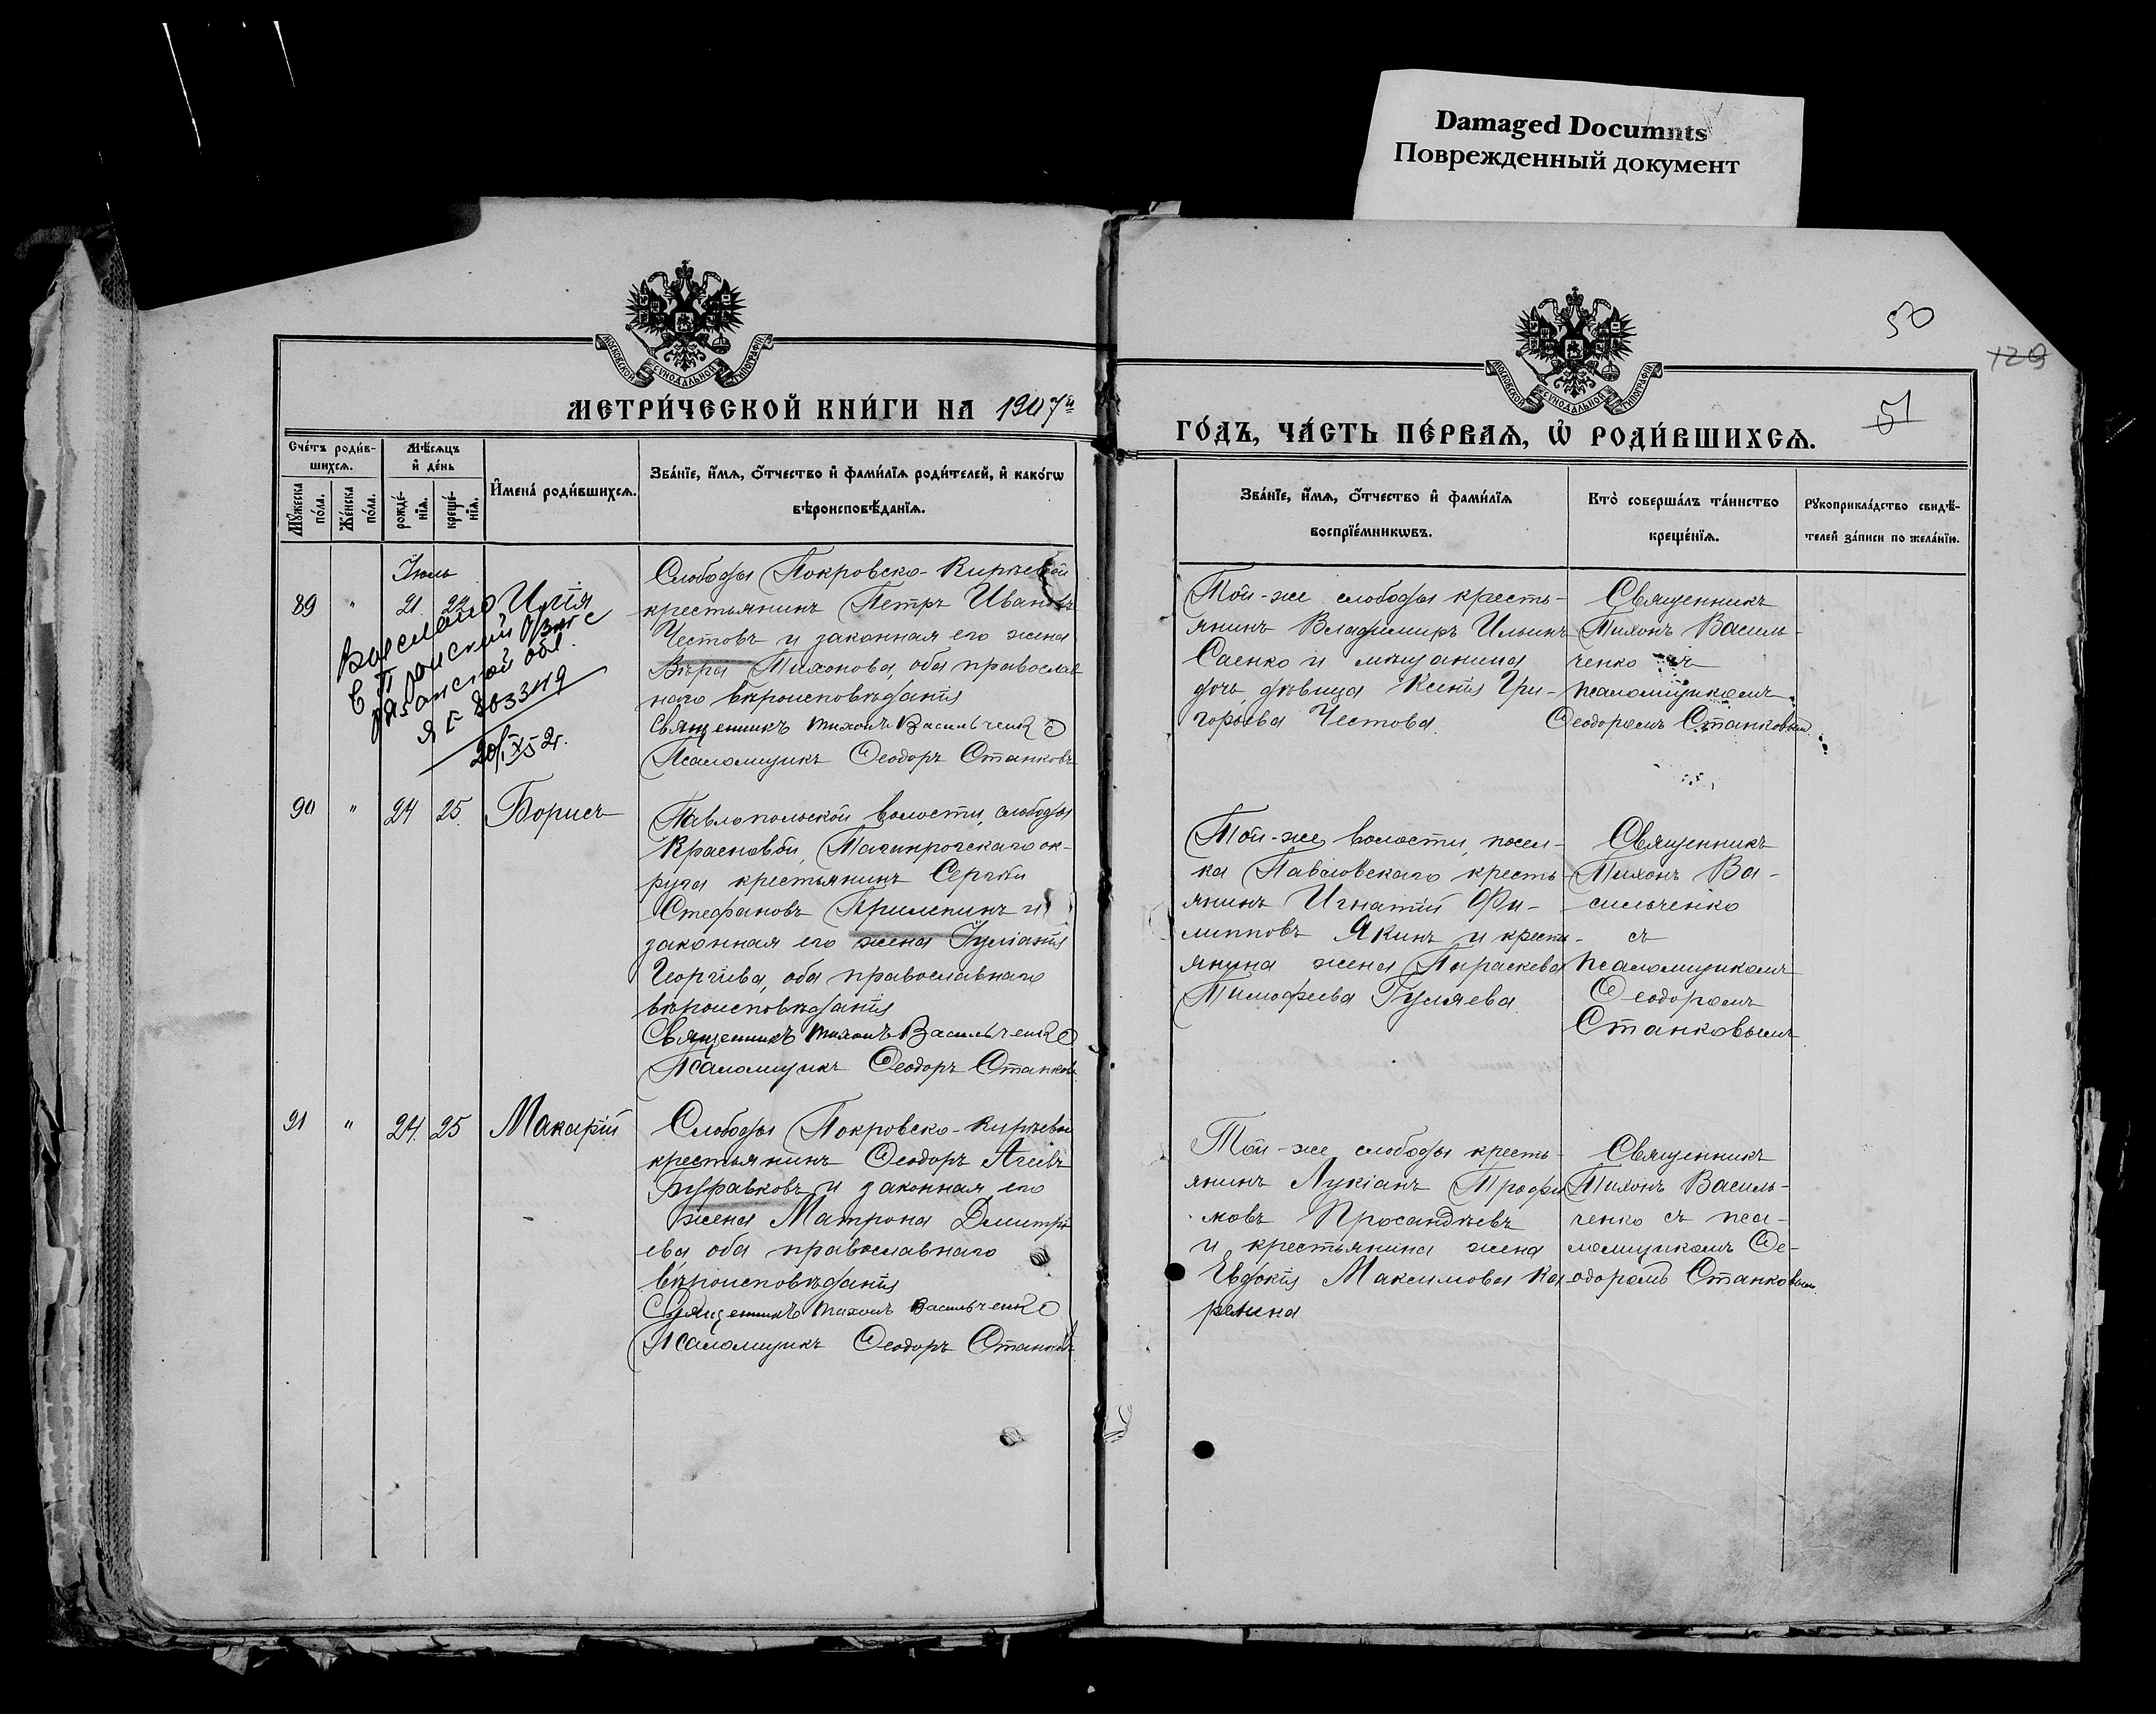 Damaged Documnts
Поврежденный документ
50
129
51
МОСКОВСКОЙ СУНОДАЛЬНОЙ ТИПОГРАФІИ
МОСКОВСКОЙ СУНОДАЛЬНОЙ ТИПОГРАФІИ
МЕТРИ́ЧЕСКОЙ КНИ́ГИ НА 1907й
ГО́ДЪ, ЧА́СТЬ ПЕ́РВАѦ, Ѡ҆ РОДИ́ВШИХСѦ.
Сче́тъ роди́в-
шихсѧ.
Мꙋ́жеска по́ла.
Же́нска по́ла.
Мѣ́сѧцъ
и҆ де́нь
рожде́-
нїѧ.
креще́-
нїѧ.
И҆мена̀ роди́вшихсѧ.
Зва́нїе, и҆́мѧ, ѻ҆́тчество и҆ фами́лїѧ роди́телей, и҆ како́гѡ
вѣроисповѣ́данїѧ.
Зва́нїе, и҆́мѧ, ѻ҆́тчество и҆ фами́лїѧ
воспрїе́мникѡвъ.
Кто̀ соверша́лъ та́инство
креще́нїѧ.
Рꙋкоприкла́дство свидѣ́-
телей за́писи по жела́нїю.
Іюль
89 " 21. 22. Илія
Выслано
в Пронский Рзагс
Рязанской обл.
ЯГ 803349
20/IX 52г.
Слободы Покровско-Кирѣевой
крестьянинъ Петръ Ивановъ
Честовъ и законная его жена
Вѣра Тихонова, оба православ
наго вѣроисповѣданія
Священникъ Тихонъ Васильченко
Псаломщикъ Ѳеодоръ Станковъ
Той-же слободы кресть-
янинъ Владимиръ Ильинъ
Саенко и мѣщанина
дочь, дѣвица Ксенія Гри-
горьева Честова.
Священникъ
Тихонъ Василь-
ченко съ
псаломщикомъ
Ѳеодоромъ Станковым
90 " 24 25. Борисъ
Павлопольской волости, слободы
Красновой, Таганрогскаго ок-
руга крестьянинъ Сергѣй
Стефановъ Прилепинъ и
законная его жена Іуліанія
Георгіева, оба православнаго
вѣроисповѣданія
Священникъ Тихонъ Васильченко
Псаломщикъ Ѳеодоръ Станковъ
Той-же волости, посел-
ка Павловскаго кресть-
янинъ Игнатій Фи-
липповъ Якинъ и кресть-
янина жена Параскева
Тимофеева Гуляева.
Священникъ
Тихонъ Ва-
сильченко
съ
псаломщикомъ
Ѳеодоромъ
Станковымъ
91 " 24. 25 Макарій
Слободы Покровско-Кирѣевой
крестьянинъ Ѳеодоръ Агеевъ
Журавковъ и законная его
жена Матрона Дмитрі-
ева оба православнаго
вѣроисповѣданія
Священникъ Тихонъ Васильченко
Псаломщикъ Ѳеодоръ Станковъ
Той-же слободы кресть-
янинъ Лукіанъ Трофи
мовъ Просандѣевъ
и крестьянина жена
Евдокія Максимова Ка-
релина
Священникъ
Тихонъ Василь-
ченко съ пса-
ломщикомъ Ѳе-
одоромъ Станковым